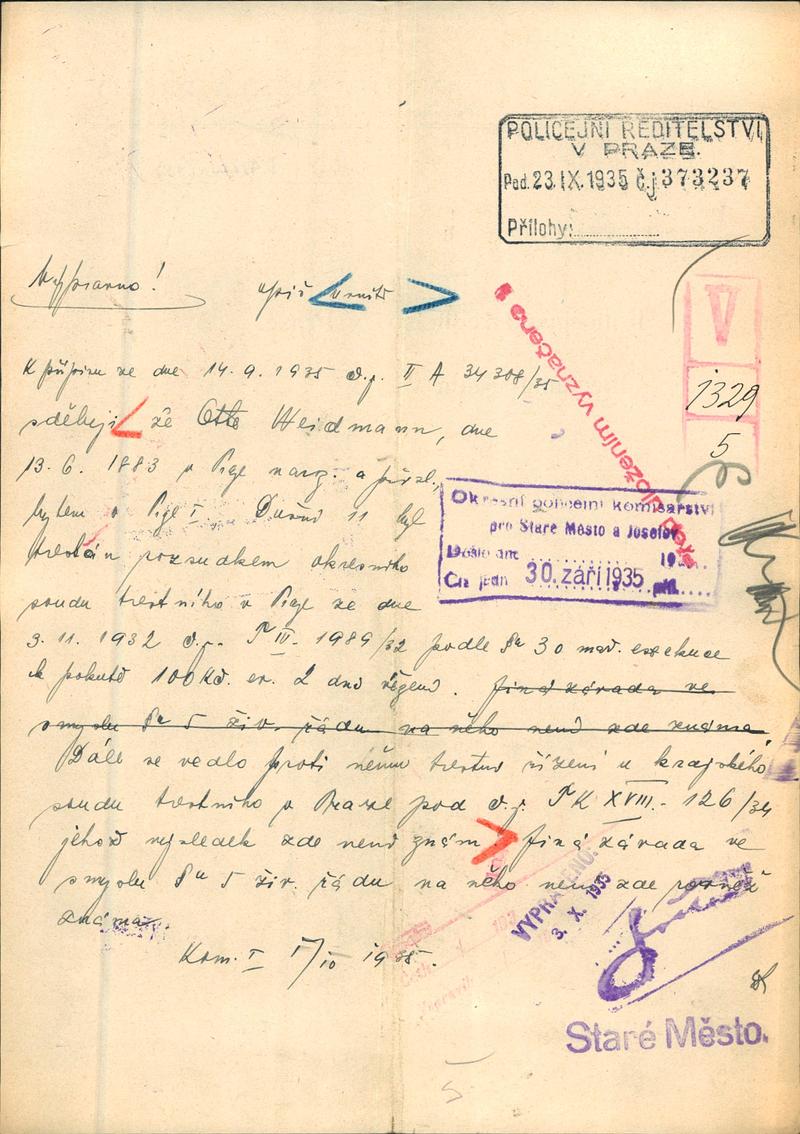 POLICEJNÍ ŘEDITELSTVÍ
V PRAZE.
Pod. 23. IX. 1935 č.j 373237
Přílohy:
V
1329
5
K přípisu ze dne 14. 9. 1935 č.j. II A 34308/35
sděluji že Otto Weidmann, dne
13. 6. 1883 v Praze naroz. a přísl.,
bytem v Praze I Dušní 11 byl
trestán rozsudkem okresního
soudu trestního v Praze ze dne
9. 11. 1932 č.j. T III. 1989/32 podle § 30 exekuce
k pokutě 100 Kč. ev. 2 dnů vězení. Jiná závada ve
smyslu § 5 živ. řádu na něho není zde známa.
Dále se vedlo proti němu trestní řízení u krajského
soudu trestního v Praze pod č.j. TK XVIII. - 126/34
jehož výsledek zde není znám. Jiná závada ve
smyslu § 5 živ. řádu na něho není zde rovněž
známa.
Kom. I 1/10 1935.
vyznačeno
Okresní policejní komisařství
pro Staré Město a Josefov
Došlo dne 19
Čís. jedn 30. září 1935 příl.
VYPRAVENO:
3. X. 1935
Staré Město.
5